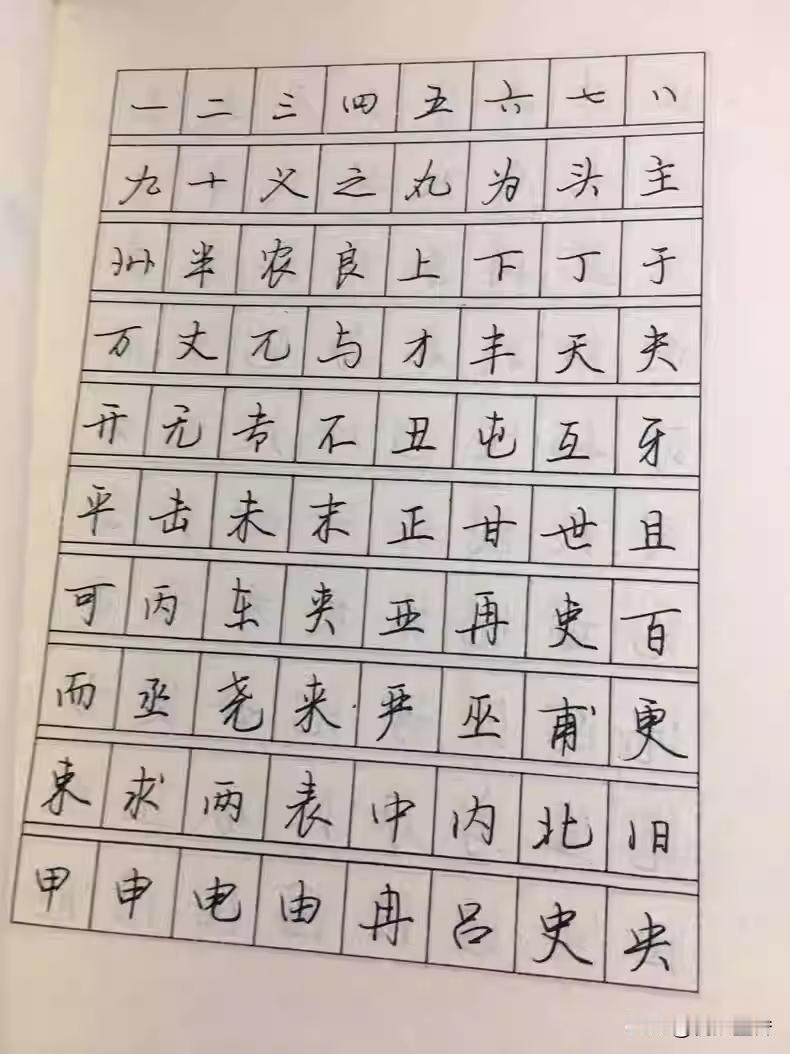 一二三四五六七八
九十义之丸为头主
州半农良上下丁于
万丈兀与才丰天夫
开无专不丑屯互牙
平击未末正甘世且
可丙车夹亚再吏百
而丞尧来严巫甫更
束求两表中内北旧
甲申电由冉吕史央